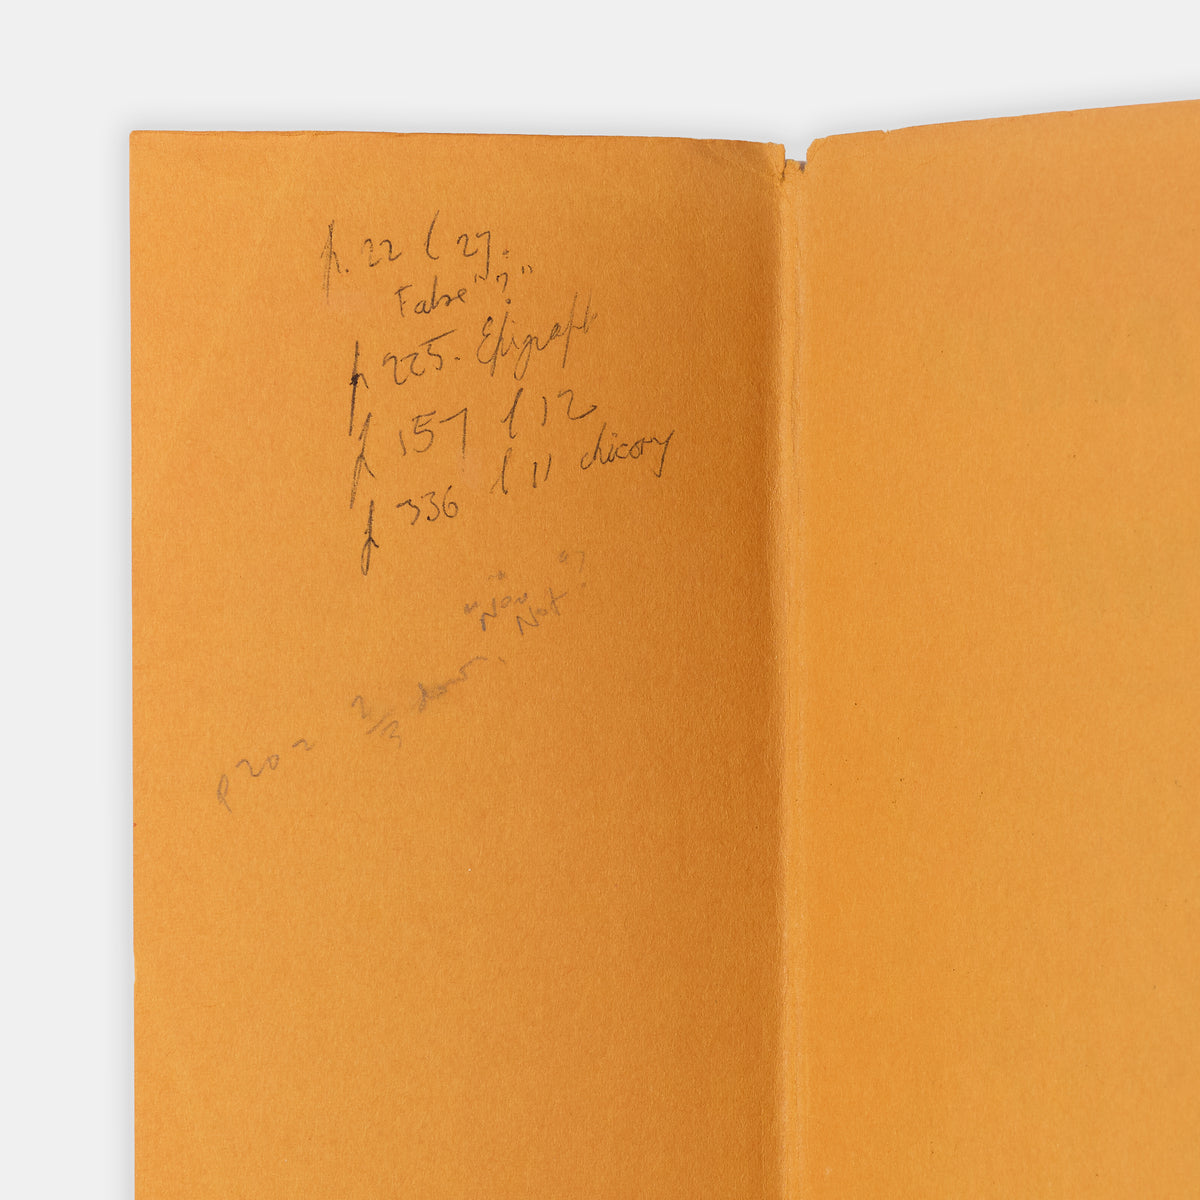 p. 22 l 27.
False "?"
p 225. Epigraph
p 157 l 12
p 336 l 11 chicory
"Nau
Not"?
p 202 2/3 down,